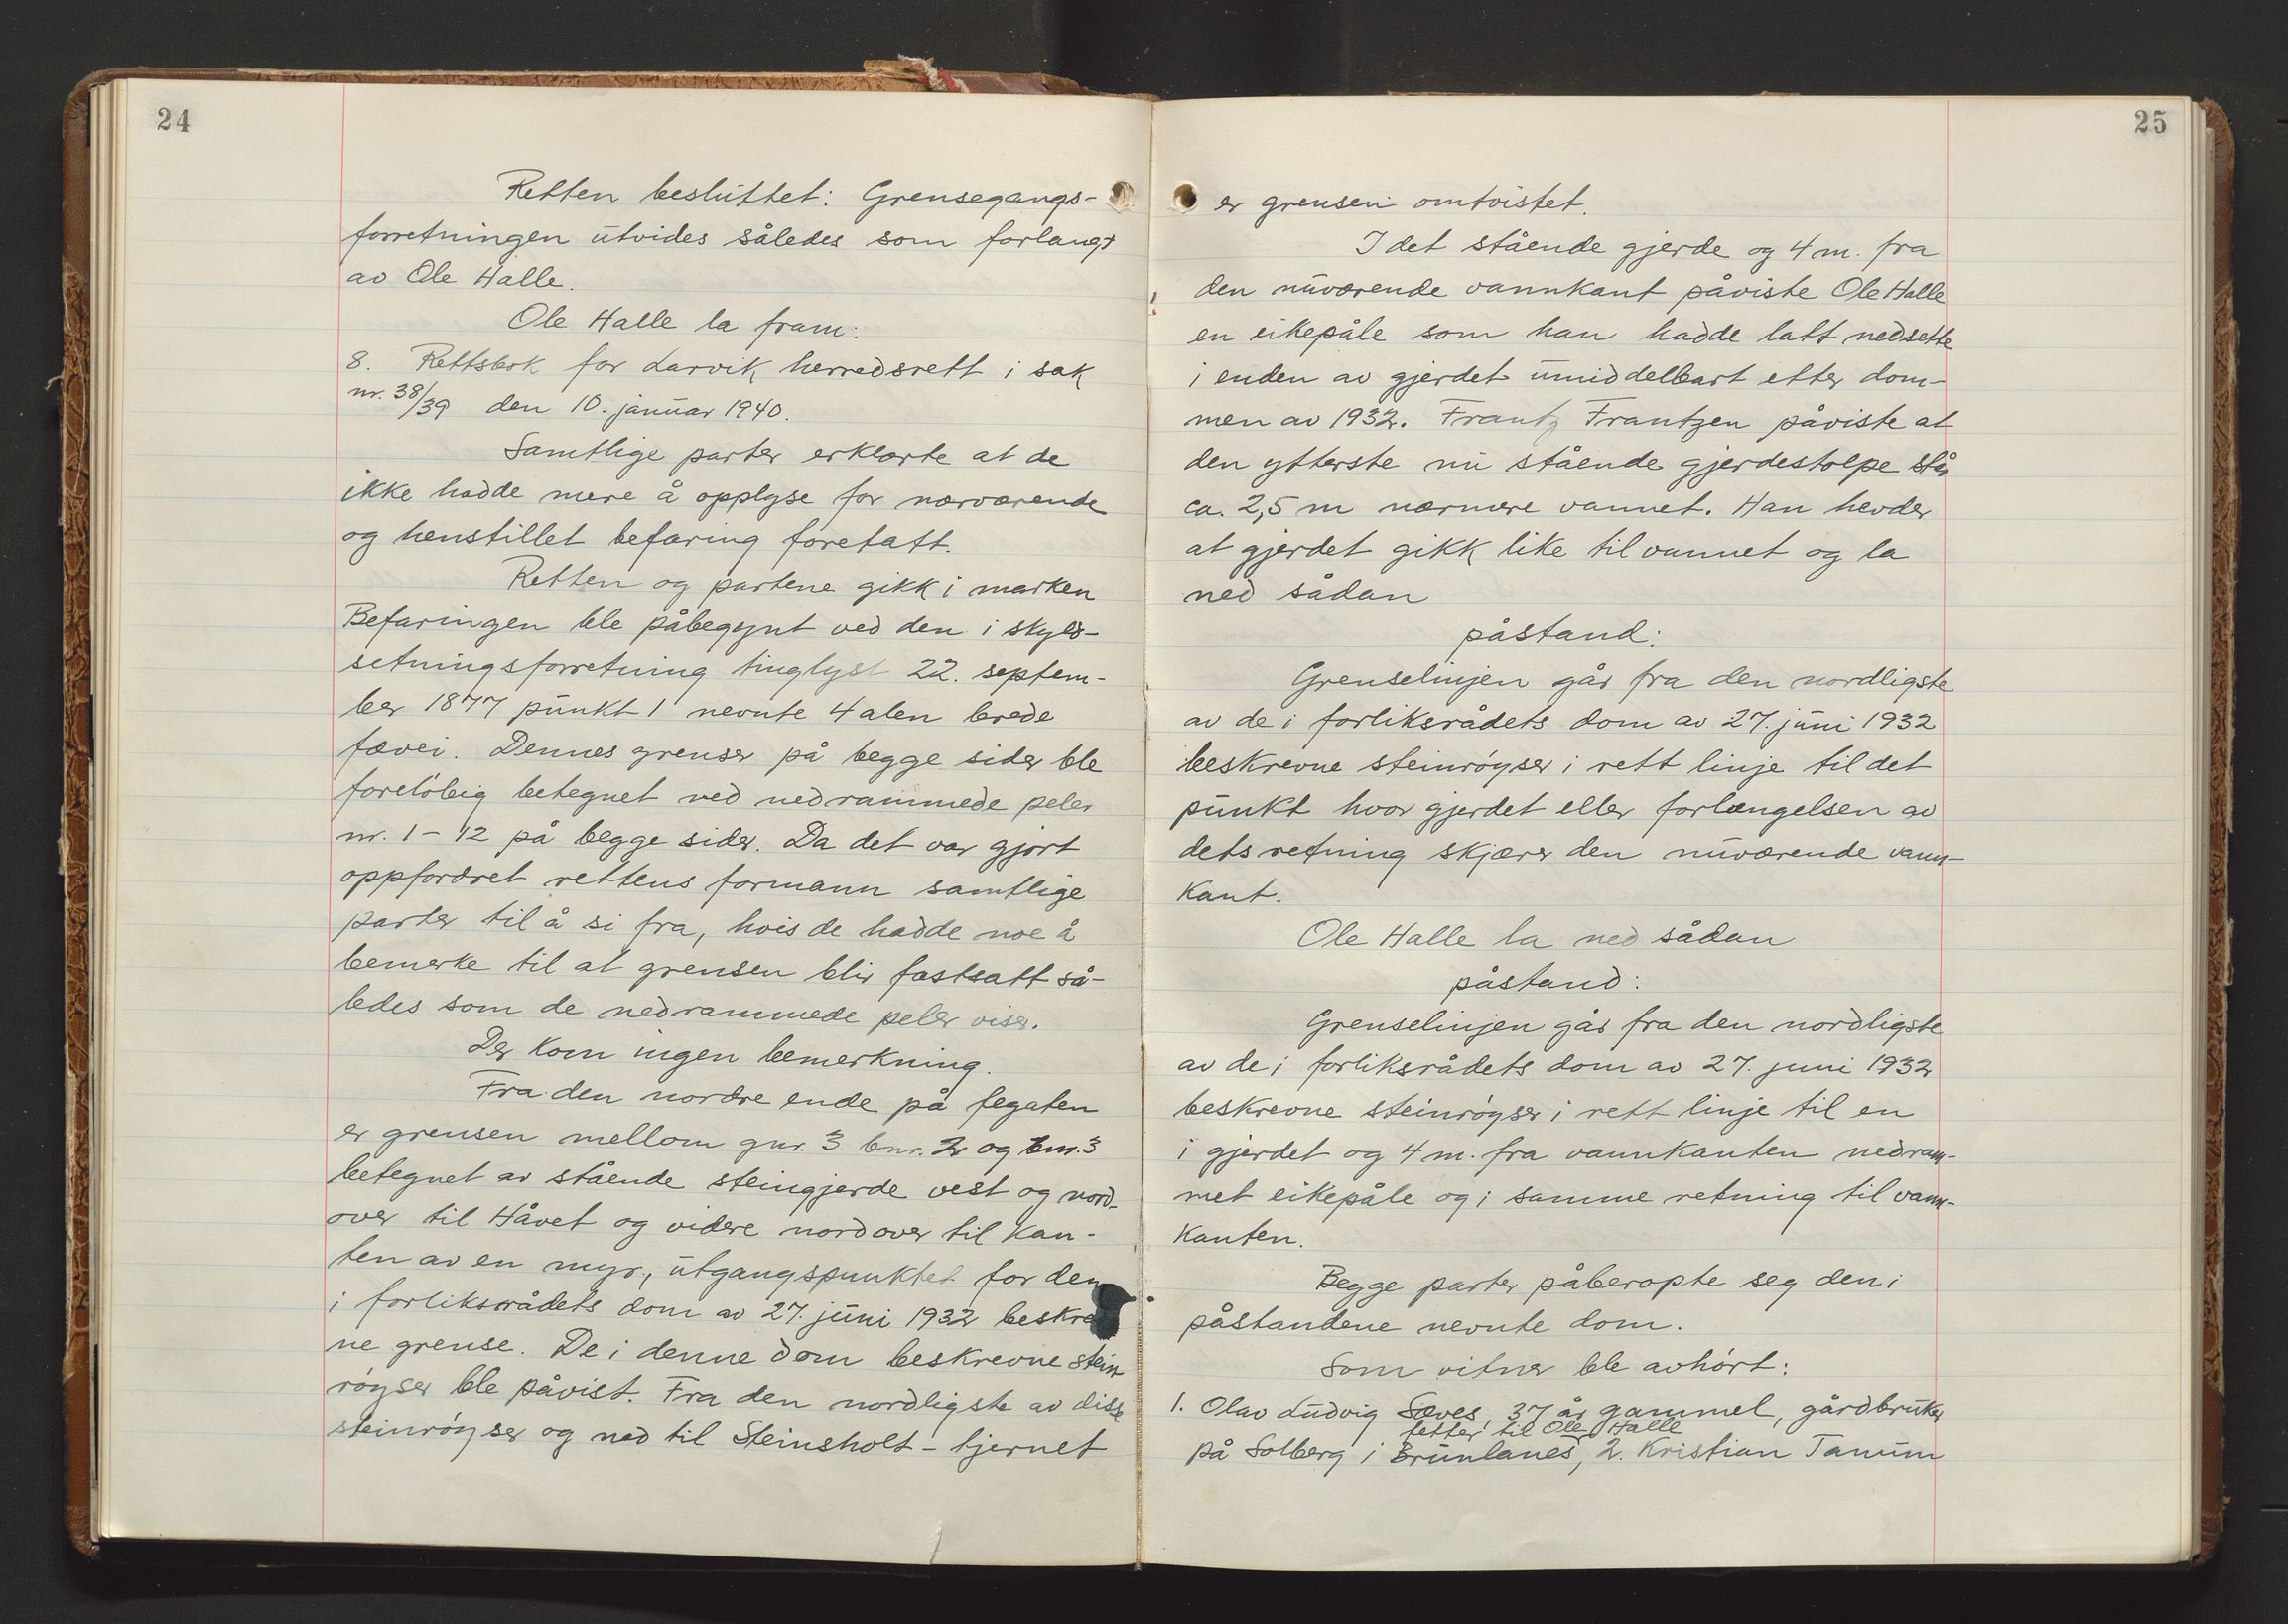 24
Retten besluttet: Grensegangs-
forretningen utvides således som forlangt
av Ole Halle.
Ole Halle la fram:
8. Rettsbok for Larvik herredsrett i sak
nr. 38/39 den 10. januar 1940.
Samtlige parter erklærte at de
ikke hadde mere å opplyse for nærværende
og henstillet befaring foretatt.
Retten og partene gikk i marken
Befaringen ble påbegynt ved den i skyld-
setningsforretning tinglyst 22. septem-
ber 1877 punkt 1 nevnte 4 alen brede
fævei. Dennes grenser på begge sider ble
foreløbig betegnet ved nedrammede peler
nr. 1 - 12 på begge sider. Da det var gjort
oppfordret rettens formann samtlige
parter til å si fra, hvis de hadde noe å
bemerke til at grensen blir fastsatt så-
ledes som de nedrammede peler viser.
Der kom ingen bemerkning.
Fra den nordre ende på fegaten
er grensen mellom gnr. 3 bnr. 2 og bnr. 3
betegnet av stående steingjerde vest og nord-
over til Håvet og videre nordover til kan-
ten av en myr, utgangspunktet for den
i forliksrådets dom av 27. juni 1932 beskrev
ne grense. De i denne dom beskrevne stein
røyser ble påvist. Fra den nordligste av disse
steinrøyser og ned til Steinsholt-tjernet
25
er grensen omtvistet.
I det stående gjerde og 4 m. fra
den nuværende vannkant påviste Ole Halle
en eikepåle som han hadde latt nedsette
i enden av gjerdet umiddelbart etter dom-
men av 1932. Frantz Frantzen påviste at
den ytterste nu stående gjerdestolpe står
ca. 2,5 m nærmere vannet. Han hevder
at gjerdet gikk like til vannet og la
ned sådan
påstand:
Grenselinjen går fra den nordligste
av de i forliksrådets dom av 27. juni 1932
beskrevne steinrøyser i rett linje til det
punkt hvor gjerdet eller forlængelsen av
dets retning skjærer den nuværende vann-
kant.
Ole Halle la ned sådan
påstand:
Grenselinjen går fra den nordligste
av de i forliksrådets dom av 27. juni 1932
beskrevne steinrøyser i rett linje til en
i gjerdet og 4 m. fra vannkanten nedram-
met eikepåle og i samme retning til vann-
kanten.
Begge parter påberopte seg den i
påstandene nevnte dom.
Som vitner ble avhørt:
1. Olav Ludvig Sæves, 37 år gammel, gårdbruker
fetter til Ole Halle
på Solberg i Brunlanes, 2. Kristian Tanum